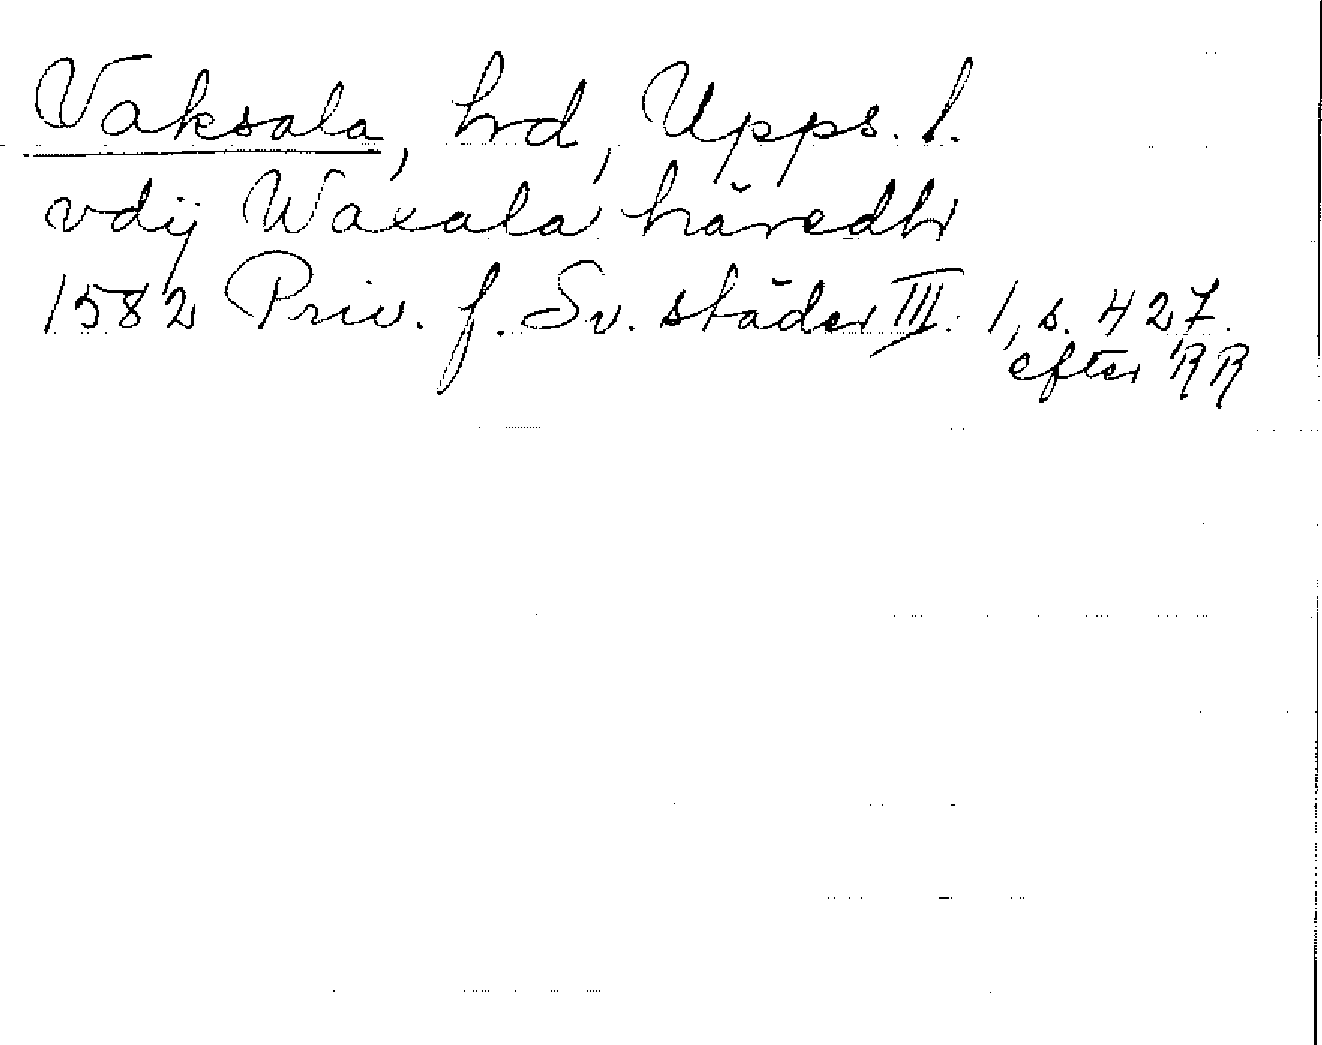 Vaksala, hrd, Upps. l.
vdij Waxala häredhr
1582 Priv. f. Sv. städer III. 1, s. 427.
efter RR